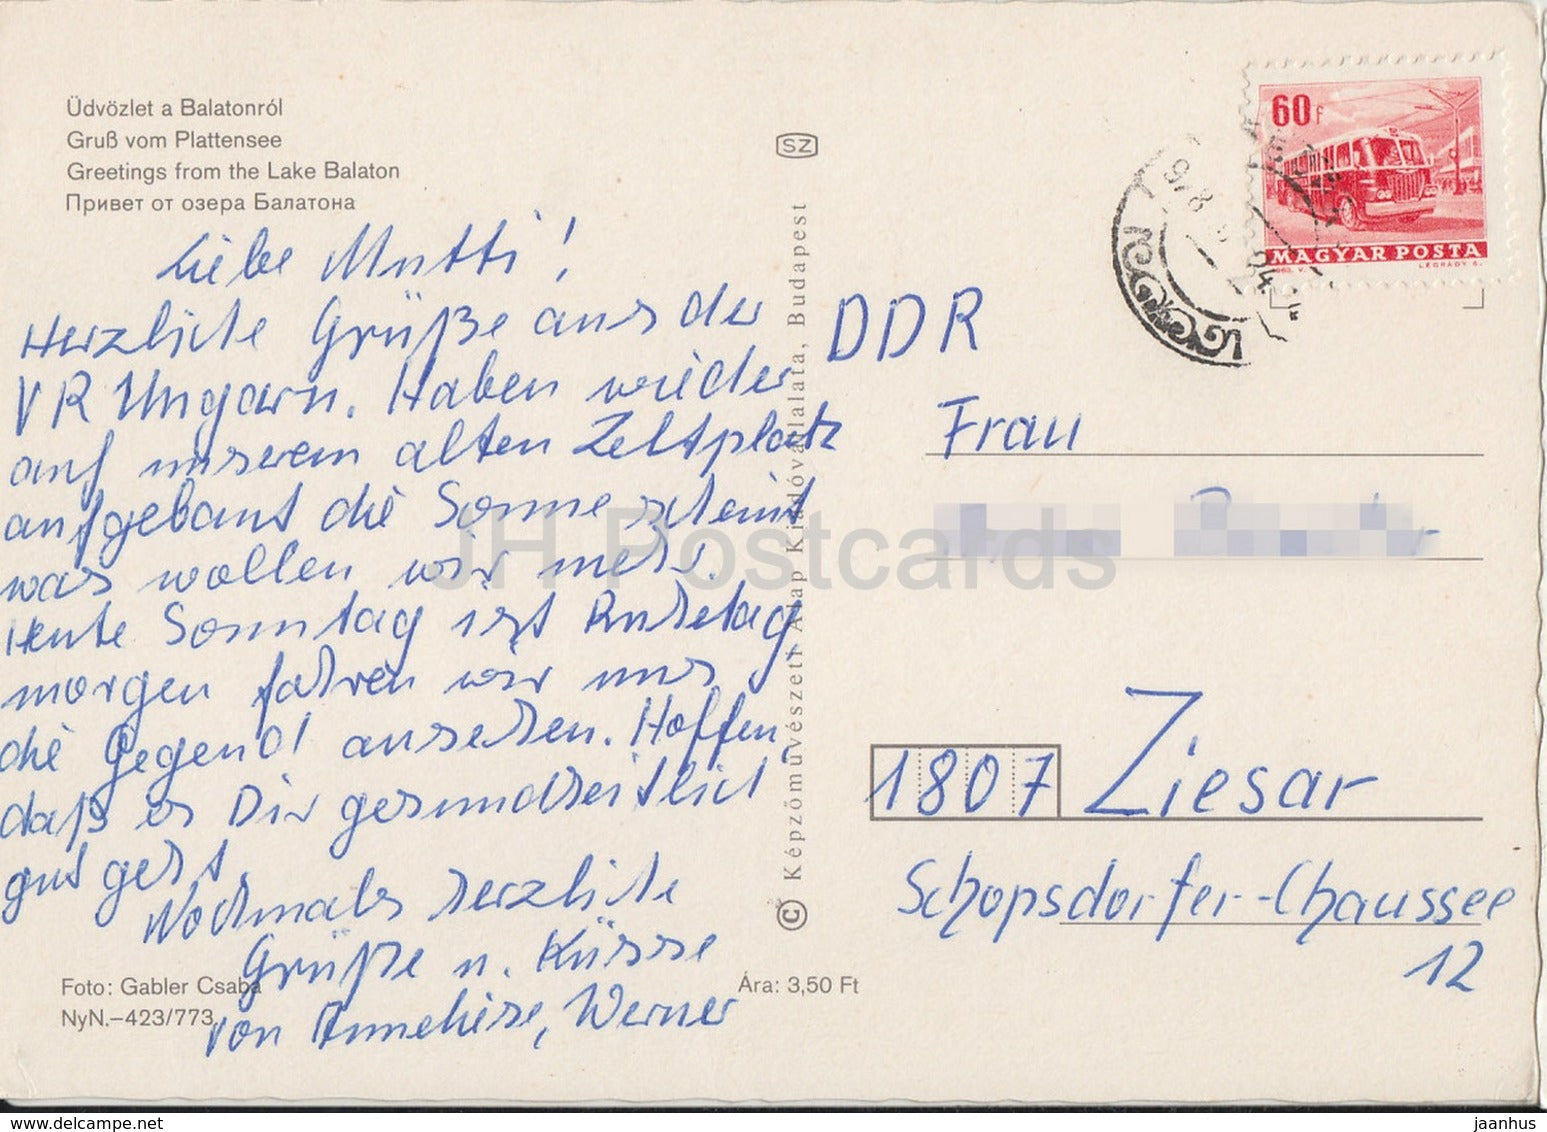 Üdvözlet a Balatonról
Gruß vom Plattensee
Greetings from the Lake Balaton
Привет от озера Балатона
Liebe Mutti!
Herzliche Grüße aus der
VR Ungarn. Haben wieder
auf unserem alten Zeltplatz
aufgebaut die Sonne scheint
was wollen wir mehr.
Heute Sonntag ist Ruhetag,
morgen fahren wir uns
die Gegend ansehen. Hoffen,
daß es Dir gesundheitlich
gut geht.
Nochmals herzliche
Grüße u. Küsse
von Anneliese, Werner
Foto: Gabler Csaba
NyN.–423/773
Ára: 3,50 Ft
SZ
© Képzőművészeti Alap Kiadóvállalata, Budapest
60f
MAGYAR POSTA
LÉGRÁDY S.
DDR
Frau
1807 Ziesar
Schopsdorfer-Chaussee
12
JH Postcards
www.delcampe.net
jaanhus